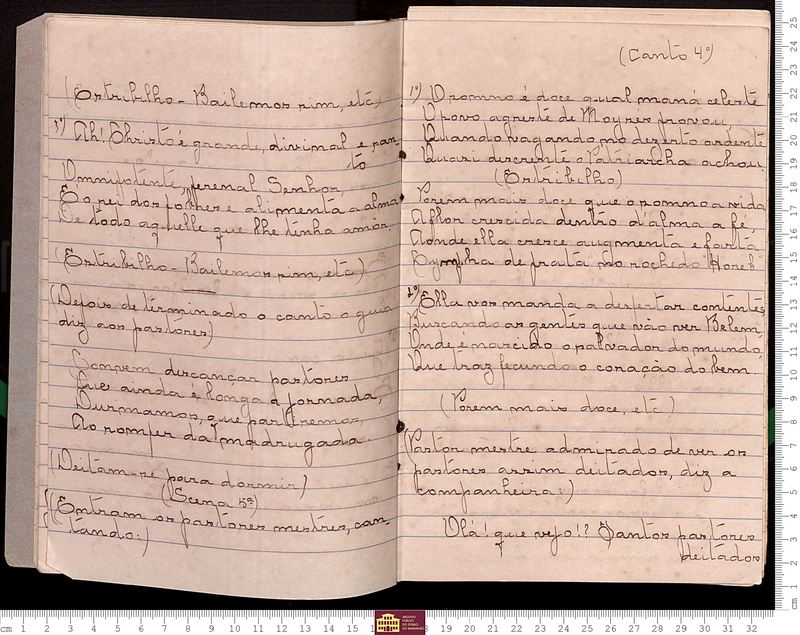 (Estribilho - Bailemos sim, etc)
3º) Ah! Christo é grande, divinal e san-
to
Omnipotente, perenal Senhor,
É o rei dos pobres e alimenta a alma
De todo aquelle que lhe tenha amor.
(Estribilho - Bailemos sim, etc)
(Depois de terminado o canto o guia
diz aos pastores)
Convem descançar pastores
Que ainda é longa a jornada,
Durmamos, que partiremos,
Ao romper da madrugada.
(Deitam-se para dormir)
(Scena 5ª)
(Entram os pastores mestres, can-
tando:)
(Canto 4º)
1º) O somno é doce qual maná celeste
O povo agreste de Moyses provou,
Quando vagando no dezerto ardente
Quasi descrente o Patriarcha achou.
(Estribilho)
Porem mais doce que o somno a vida
A flor crescida dentro d'alma a fé,
Aonde ella cresce augmenta e farta
Lympha de prata no rochedo Horeb
2º) Ella vos manda a despertar contentes
Buscando as gentes que vão ver Belem,
Onde é nascido o salvador do mundo,
Que traz fecundo o coração do bem.
(Porem mais doce, etc)
(Pastor mestre admirado de ver os
pastores assim deitados, diz a
companheira:)
Olá! que vejo!? Tantos pastores
deitados
cm 1 2 3 4 5 6 7 8 9 10 11 12 13 14 15 18 19 20 21 22 23 24 25 26 27 28 29 30 31 32
cm 1 2 3 4 5 6 7 8 9 10 11 12 13 14 15 16 17 18 19 20 21 22 23 24 25
ARQUIVO
PÚBLICO
DO ESTADO
DO MARANHÃO